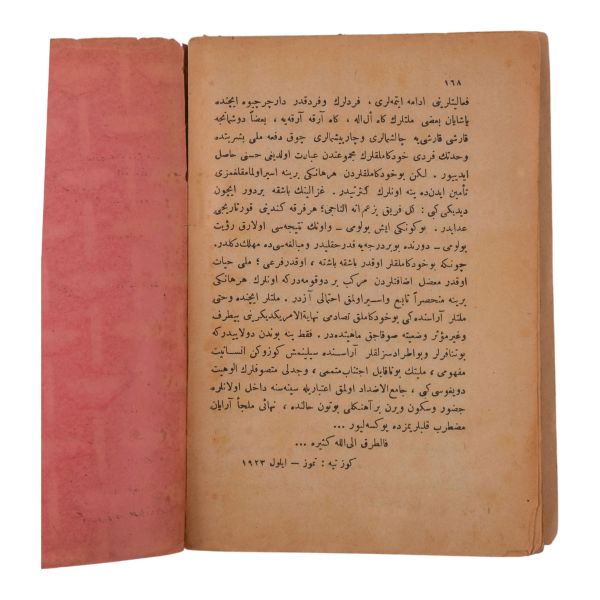 ١٦٨
فعاليتلرينى ادامه ايتمه‌لرى ، فردلرك و فردقدر دارچرچيوه ايچنده
ياشايان بعضى ملتلرك كاه ال‌اله ، كاه آرقه آرقه‌يه ، بعضاً دوشمانجه
قارشى قارشى‌يه چاليشمالرى و چارپيشمالرى چوق دفعه ملى بشريتده
وحدتك فردى خودكاملقلرك مجموعندن عبارت اولديغى حسنى حاصل
ايدييور . لكن بوخودكاملقلردن هرهانكى برينه اسيراولمامقلغمزى
تأمين ايدن‌ده ينه اونلرك كثرتيدر . غزالينك باشقه بردور ايچون
ديديكى كبى : كل فريق يزعم انه الناجى ؛ هرفرقه كندينى قورتاريجى
عدايدر . بوكونكى ايش بولومى – واونك نتيجه‌سى اولارق رؤيت
بولومى – دورنده بوبردرجه‌يه قدرحقليدر ومبالغه‌سى‌ده مهلك‌دكلدر .
چونكه بوخودكاملقلر اوقدر باشقه باشقه ، اوقدرفرعى ؛ ملى حيات
اوقدر معضل اضافتلردن مركب بردوقومه‌دركه اونلرك هرهانكى
برينه منحصراً تابع واسيراولمق احتمالى آزدر . ملتلر ايچنده وحتى
ملتلر آراسنده‌كى بوخودكاملق تصادمى نهاية‌الامريكديكرينى بيطرف
وغيرمؤثر وضعيته صوقاجق ماهيتده‌در . فقط ينه بوندن دولاييدركه
بوتنافرلر وبواطرادسزلقلر آراسنده سيلينمش كوزوكن انسانيت
مفهومى ، ملتيك بوناقابل اجتناب متممى ، وجدلى متصوفلرك الوهيت
دويغوسى كبى ، جامع‌الاضداد اولمق اعتباريله سينه‌سنه داخل اولانلره
حضور وسكون ويرن برآهنكلى بوتون حالنده ، نهائى ملجأ آرايان
مضطرب قلبلريمزده يوكسه‌ليور ...
فالطرق الى‌الله كثيره ...
كوزتپه : تموز – ايلول ١٩٢٣